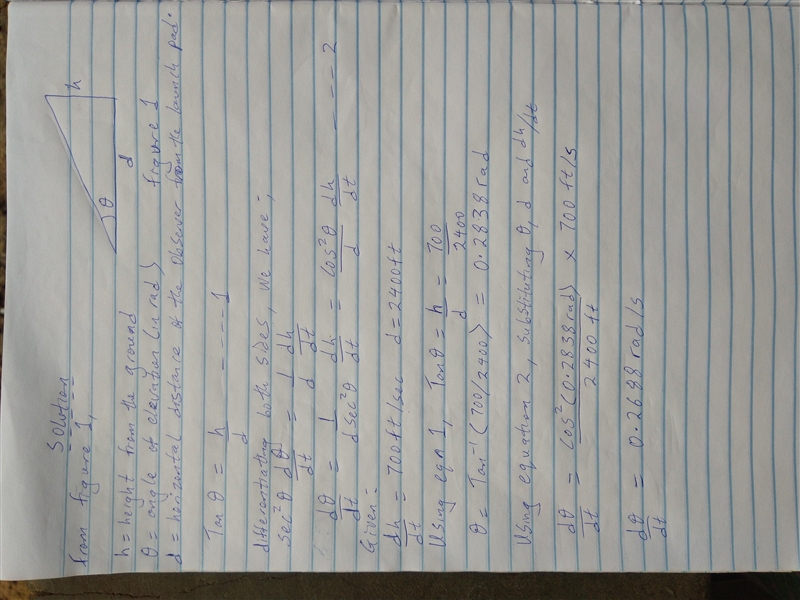 Solution
from figure 1,
h
θ
d
figure 1
h = height from the ground
θ = angle of elevation (in rad)
d = horizontal distance of the observer from the launch pad.
Tan θ = h/d ----- 1
differentiating both sides, We have;
sec²θ dθ/dt = 1/d dh/dt
dθ/dt = 1/(d sec²θ) dh/dt = cos²θ/d dh/dt ---- 2
Given:
dh/dt = 700ft/sec d = 2400ft
Using eqn 1, Tanθ = h/d = 700/2400
θ = Tan⁻¹(700/2400) = 0.2838 rad
Using equation 2, substituting θ, d and dh/dt
dθ/dt = cos²(0.2838rad)/2400 ft × 700 ft/s
dθ/dt = 0.2688 rad/s